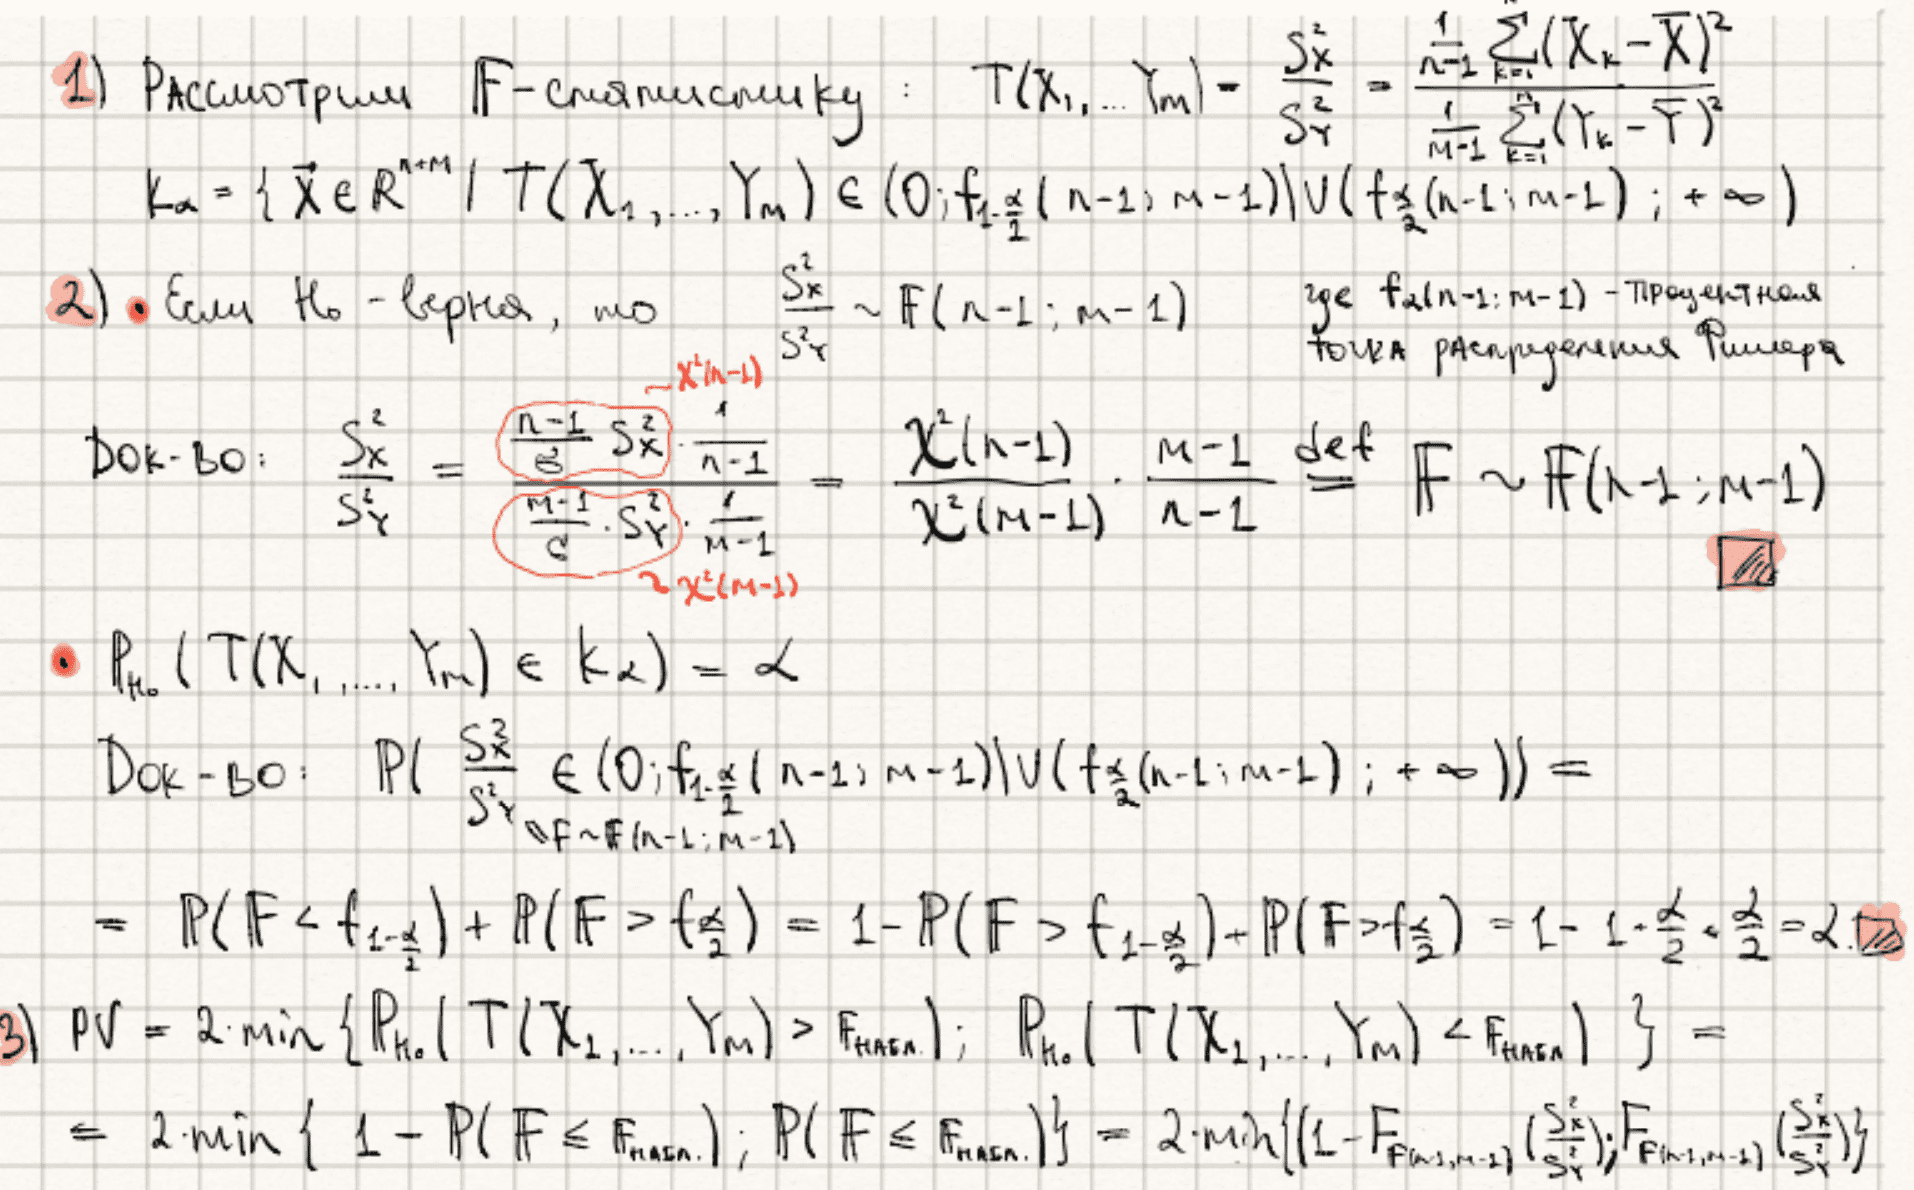 1) Рассмотрим 𝔽-статистику : T(X₁,...Yₘ) = S²_X / S²_Y = (1/(n-1) Σ_{k=1}^{n} (X_k - X̄)²) / (1/(m-1) Σ_{k=1}^{m} (Y_k - Ȳ)²)
K_α = { X⃗ ∈ R^{n+m} | T(X₁,...,Yₘ) ∈ (0; f_{1-α/2}(n-1; m-1)) ∪ (f_{α/2}(n-1; m-1) ; +∞)
2) • Если H₀ - верна, то S²_X / S²_Y ~ 𝔽(n-1; m-1) где f_α(n-1; m-1) - процентная
точка распределения Фишера
~ χ²(n-1)
Док-во: S²_X / S²_Y = ((n-1)/σ S²_X · 1/(n-1)) / ((m-1)/σ · S²_Y · 1/(m-1)) = χ²(n-1) / χ²(m-1) · (m-1)/(n-1) def= 𝔽 ~ 𝔽(n-1; m-1)
~ χ²(m-1)
• ℙ_{H₀} (T(X₁,...,Yₘ) ∈ K_α) = α
Док-во: ℙ( S²_X / S²_Y ∈ (0; f_{1-α/2}(n-1; m-1)) ∪ (f_{α/2}(n-1; m-1) ; +∞)) =
F ~ 𝔽(n-1; m-1)
= ℙ(𝔽 < f_{1-α/2}) + ℙ(𝔽 > f_{α/2}) = 1 - ℙ(𝔽 > f_{1-α/2}) + ℙ(𝔽 > f_{α/2}) = 1 - 1 + α/2 + α/2 = α.
3) PV = 2·min {ℙ_{H₀}( T(X₁,...,Yₘ) > 𝔽_{набл.}); ℙ_{H₀}( T(X₁,...,Yₘ) < 𝔽_{набл}) } =
= 2·min { 1 - ℙ( 𝔽 ≤ 𝔽_{набл.}); ℙ( 𝔽 ≤ 𝔽_{набл.})} = 2·min{(1 - F_{𝔽(n-1,m-1)} (S²_X / S²_Y); F_{𝔽(n-1,m-1)} (S²_X / S²_Y)}